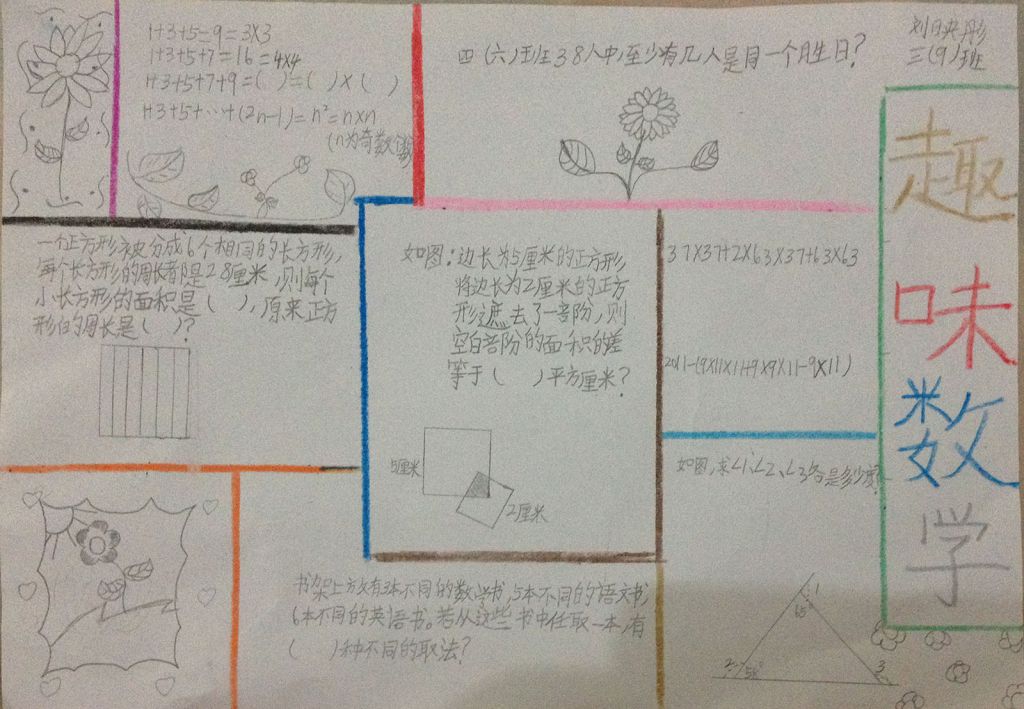 1+3+5=9=3×3
1+3+5+7=16=4×4
1+3+5+7+9=( )=( )×( )
1+3+5+…+(2n-1)=n²=n×n
(n为奇数个数)
四(六)班38人中,至少有几人是同一个月生日?
刘映彤
三(9)班
趣
味
数
学
一个正方形被分成6个相同的长方形,
每个长方形的周长都是28厘米,则每个
小长方形的面积是( ),原来正方
形的周长是( )?
如图:边长为5厘米的正方形
将边长为2厘米的正方
形遮去了一部份,则
空白部份的面积的差
等于( )平方厘米?
5厘米
2厘米
37×37+2×63×37+63×63
2011-(9×11×11+9×9×11-9×11)
如图,求∠1、∠2、∠3各是多少度?
1
65°
2
3
书架上放有3本不同的数学书,5本不同的语文书,
6本不同的英语书。若从这些书中任取一本,有
( )种不同的取法?